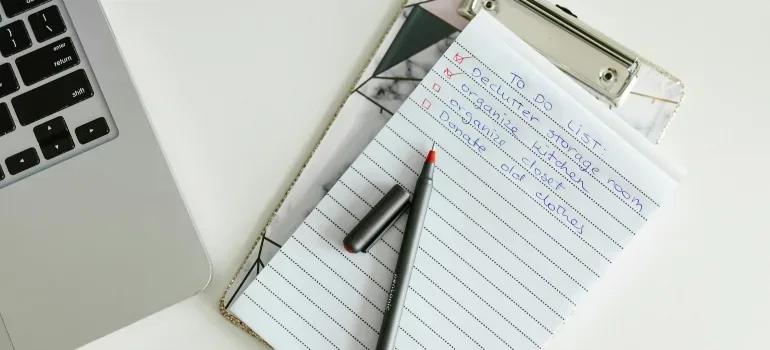 To Do LIST:
Declutter storage room
organize kitchen
organize closet
Donate old clothes
enter
return
shift